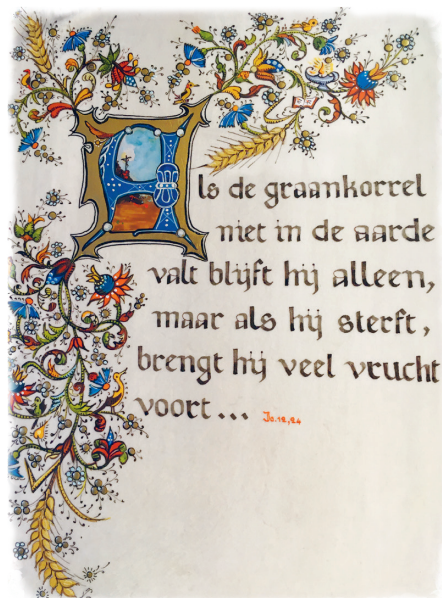 Als de graankorrel
niet in de aarde
valt blijft hij alleen,
maar als hij sterft,
brengt hij veel vrucht
voort... Jo.12,24